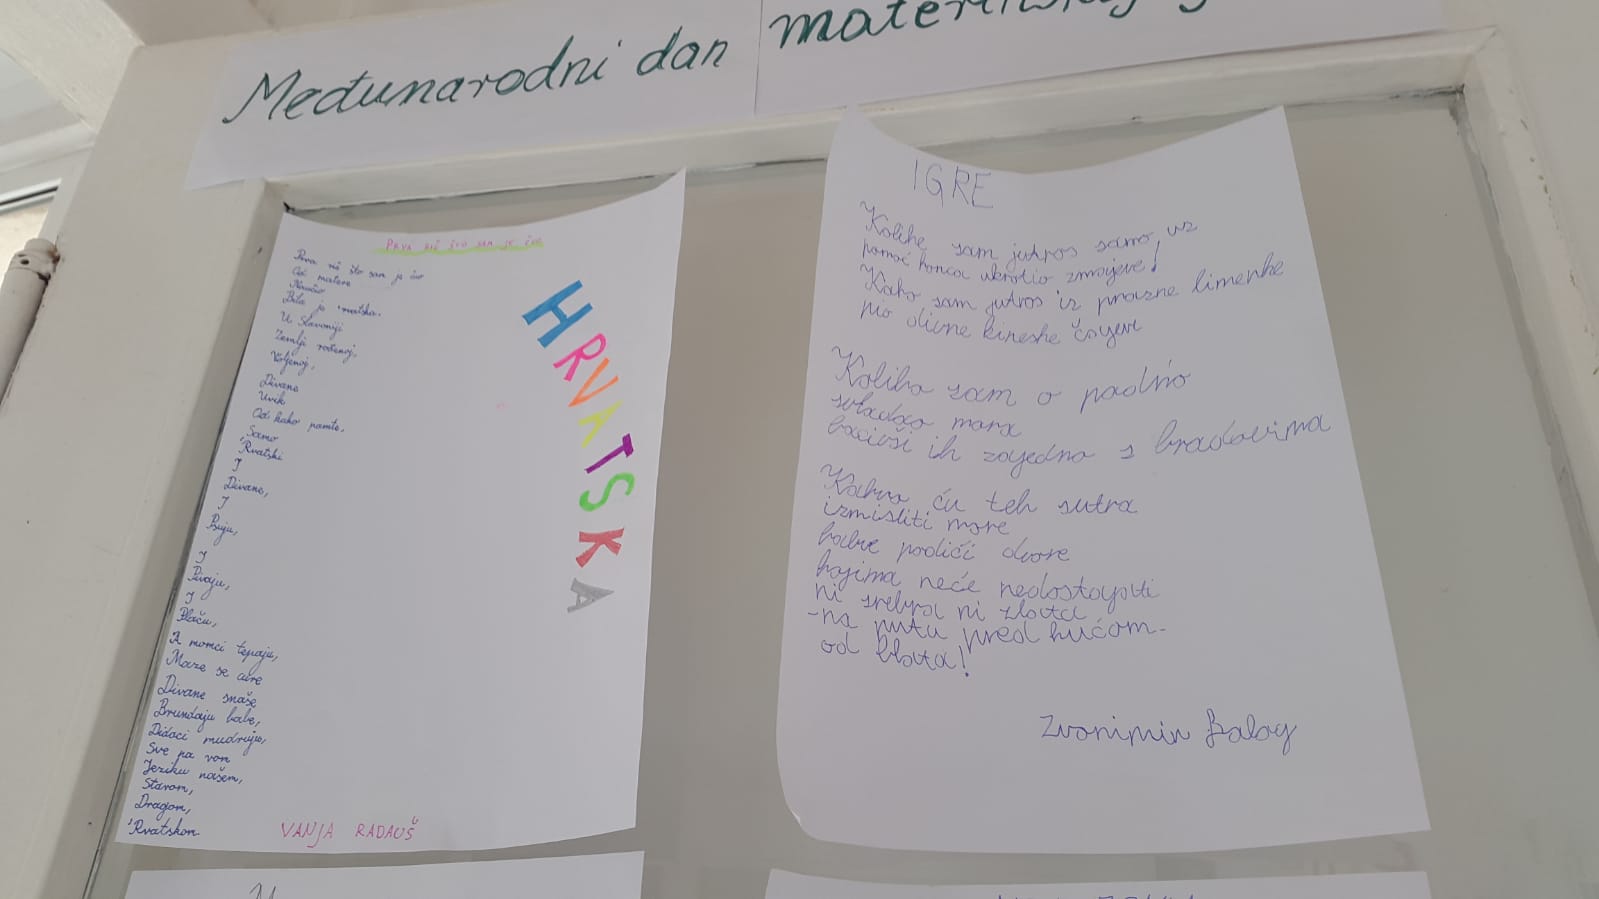 Međunarodni dan materinskog
PRVA RIČ ŠTO SAM JE ČUO
Prva rič što sam je čuo
Od matere
Naučio
Bila je
U Slavoniji
Zemlji rođenoj,
Voljenoj,
Divane
Uvik
Od kako pamte,
Samo
'Rvatski
I
Divane,
I
Psuju,
I
Pivaju,
I
Plaču,
A momci tepaju,
Maze se cure
Divane snaše
Brundaju babe,
Didaci mudruju,
Sve na vom
Jeziku našem,
Starom,
Dragom,
'Rvatskom
VANJA RADAUŠ
HRVATSKA
IGRE
Kolike sam jutros samo, uz
pomoć konca ukrotio zmajeve!
Kako sam jutros iz prazne limenke
pio divne kineske čajeve
Koliko sam o padno
svladao mora
bacivši ih zajedno s bradovima
Kakva ću teh sutra
izmisliti more
kakve podići dvore
kojima neće nedostajati
ni srebra ni zlata
-na putu pred kućom-
od blata!
Zvonimir Balog